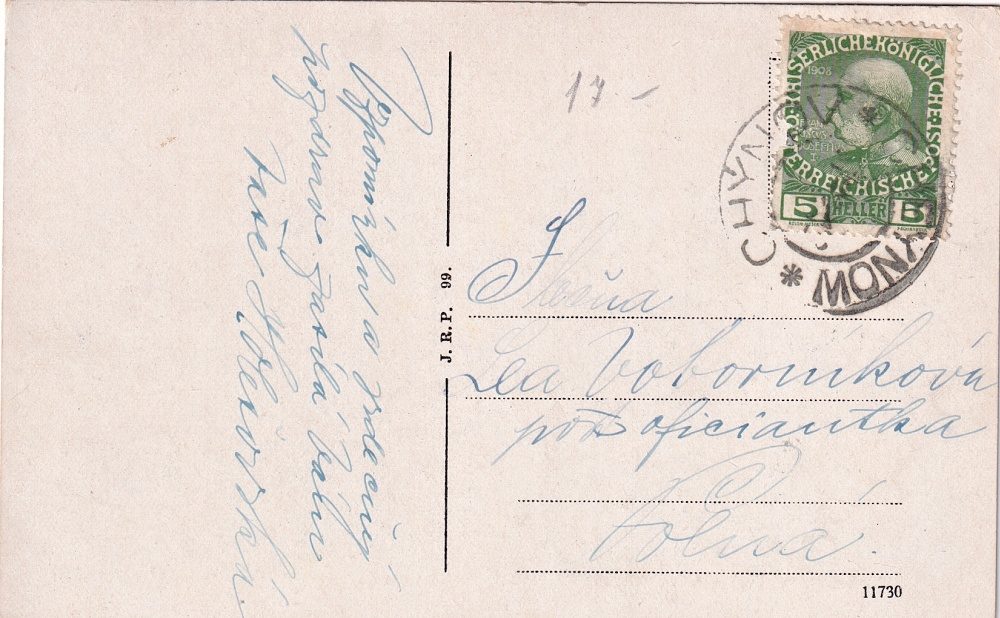 Vzpomínku a srdečný
pozdrav zasílá Vám
J. R. P. 99.
17 -
KAISERLICHE KÖNIGLICHE ÖSTERREICHISCHE POST
1908
5 HELLER
CHYNOV * CHYNOW *
Slečna
Lea Voborníková
pošt oficiantka
Polná.
11730